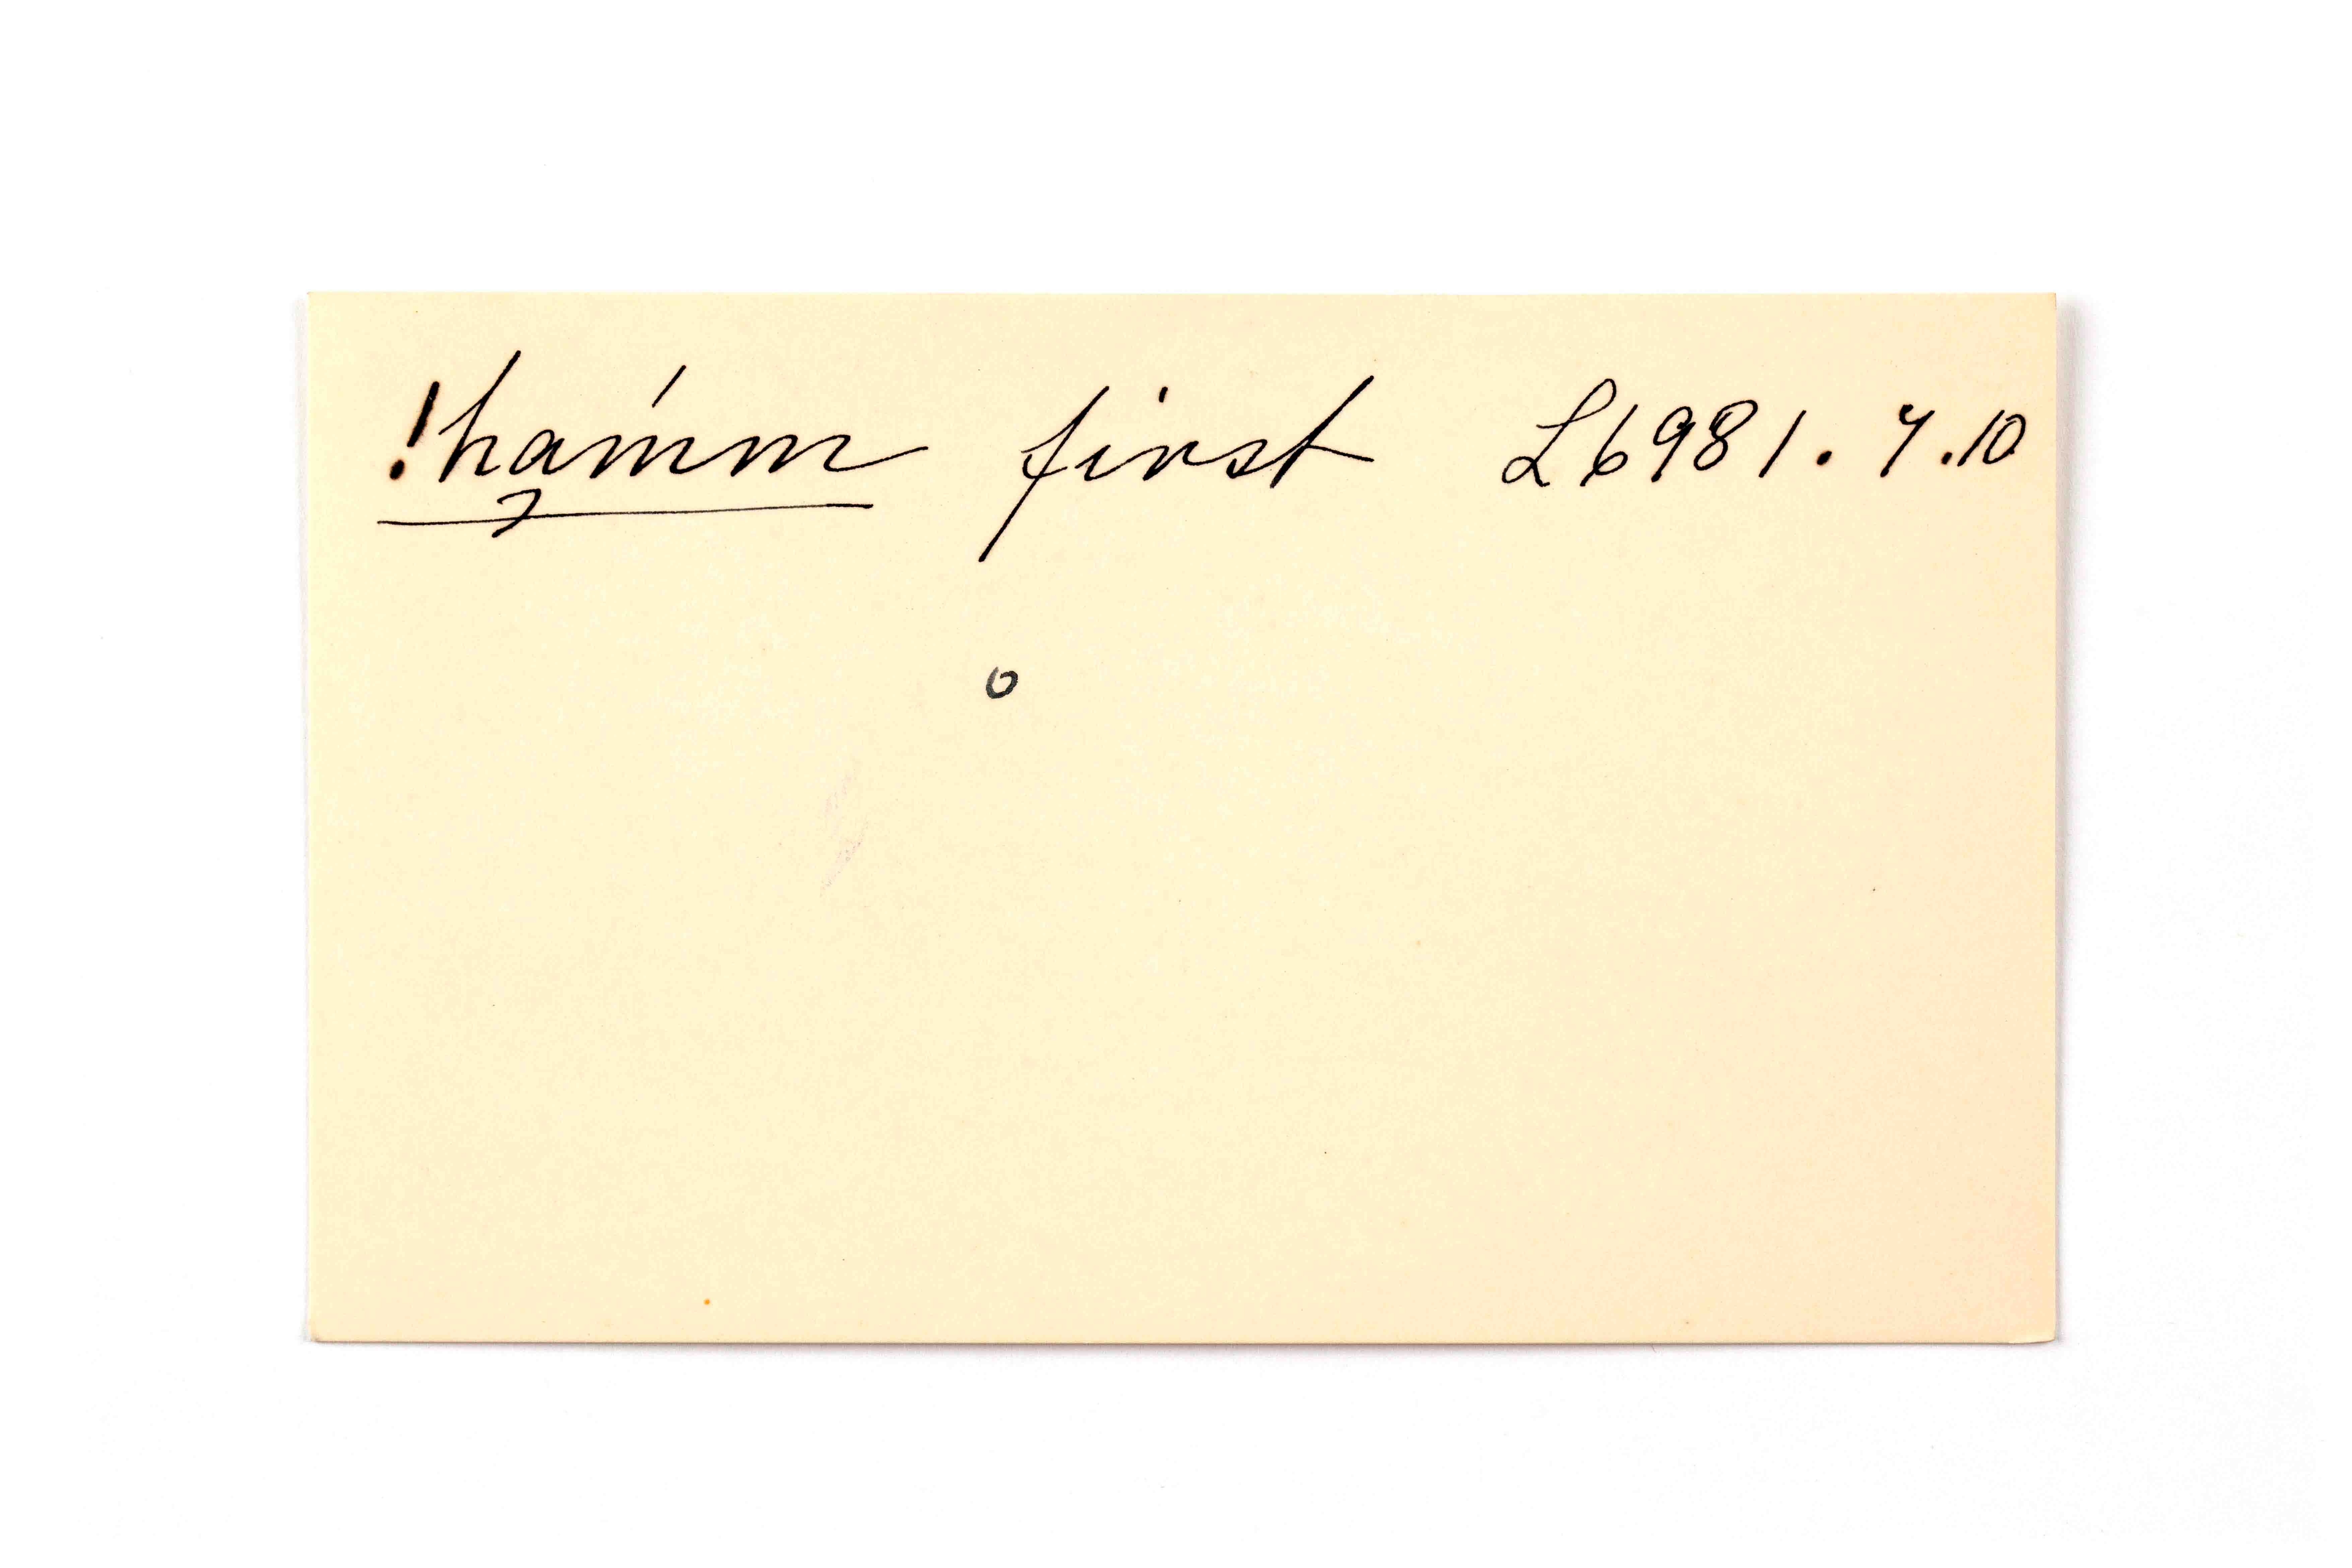 !hạm̓m first L6981.7.10
o